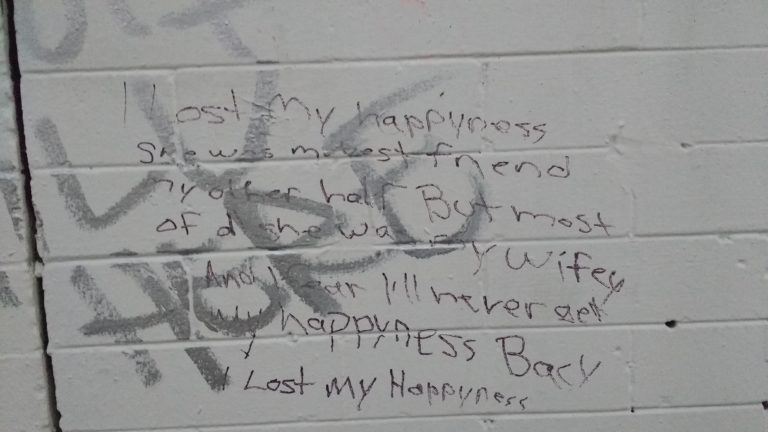 I Lost My happyness
She was my best friend
my other half But most
of all she was my wifey
And I fear I'll never get
My happyness Back
I Lost My Happyness